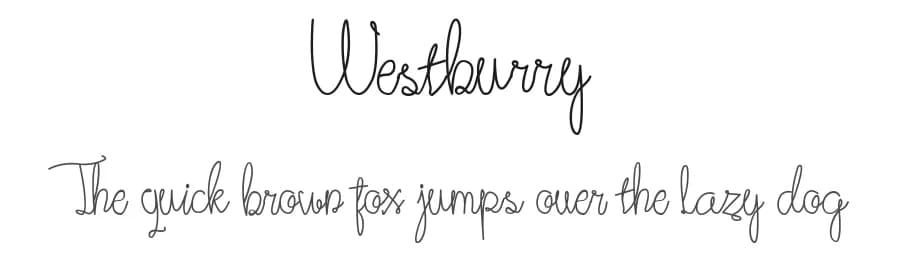 Westburry
The quick brown fox jumps over the lazy dog